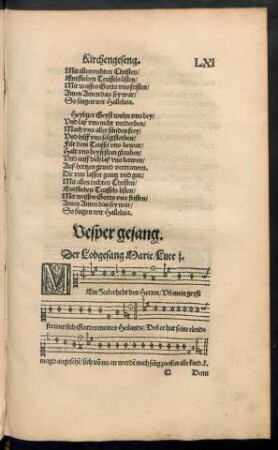 Kirchengeseng. LXI
Mit allen rechten Christen/
Entfliehen Teuffels listen/
Mit waffen Gotts uns fristen/
Amen Amen das sey war/
So singen wir Halleluia.
Heyliger Geyst wohn uns bey/
Und laß uns nicht verderben/
Mach uns aller sünden frey/
Und hilff uns selig sterben/
Für dem Teuffel uns bewar/
Halt uns bey festem glauben/
Und auff dich laß uns bawen/
Auß hertzen grund vertrawen/
Dir uns lassen gantz und gar/
Mit allen rechten Christen/
Entfliehen Teuffels listen/
Mit waffen Gotts uns fristen/
Amen Amen das sey war/
So singen wir Halleluia.
Vesper gesang.
Der Lobgesang Marie Luce j.
MEin Seel erhebt den Herren/ Uñ mein geyst
frewet sich Gottes meines Heilands/ Deñ er hat seine elende
magd angesehē/ sich võ nu an werdē mich selig preisen alle kind.k.
Q Denn